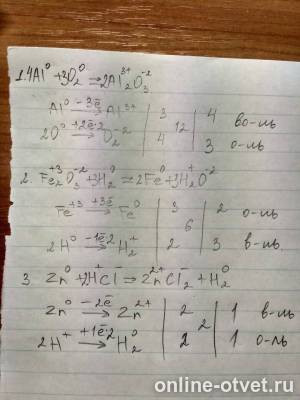 1. 4Al⁰ + 3O₂⁰ → 2Al₂³⁺O₃⁻²
Al⁰ –3ē→ Al³⁺ | 3 | 12 | 4 во-ль
2O⁰ +2ē·2→ O₂⁻² | 4 | | 3 о-ль
2. Fe₂⁺³O₃⁻² + 3H₂⁰ → 2Fe⁰ + 3H₂⁺O⁻²
Fe⁺³ +3ē→ Fe⁰ | 3 | 6 | 2 о-ль
2H⁰ –1ē·2→ H₂⁺ | 2 | | 3 в-ль.
3. Zn⁰ + 2H⁺Cl⁻ → Zn²⁺Cl₂⁻ + H₂⁰
Zn⁰ –2ē→ Zn²⁺ | 2 | 2 | 1 в-ль
2H⁺ +1ē·2→ H₂⁰ | 2 | | 1 о-ль
online-otvet.ru